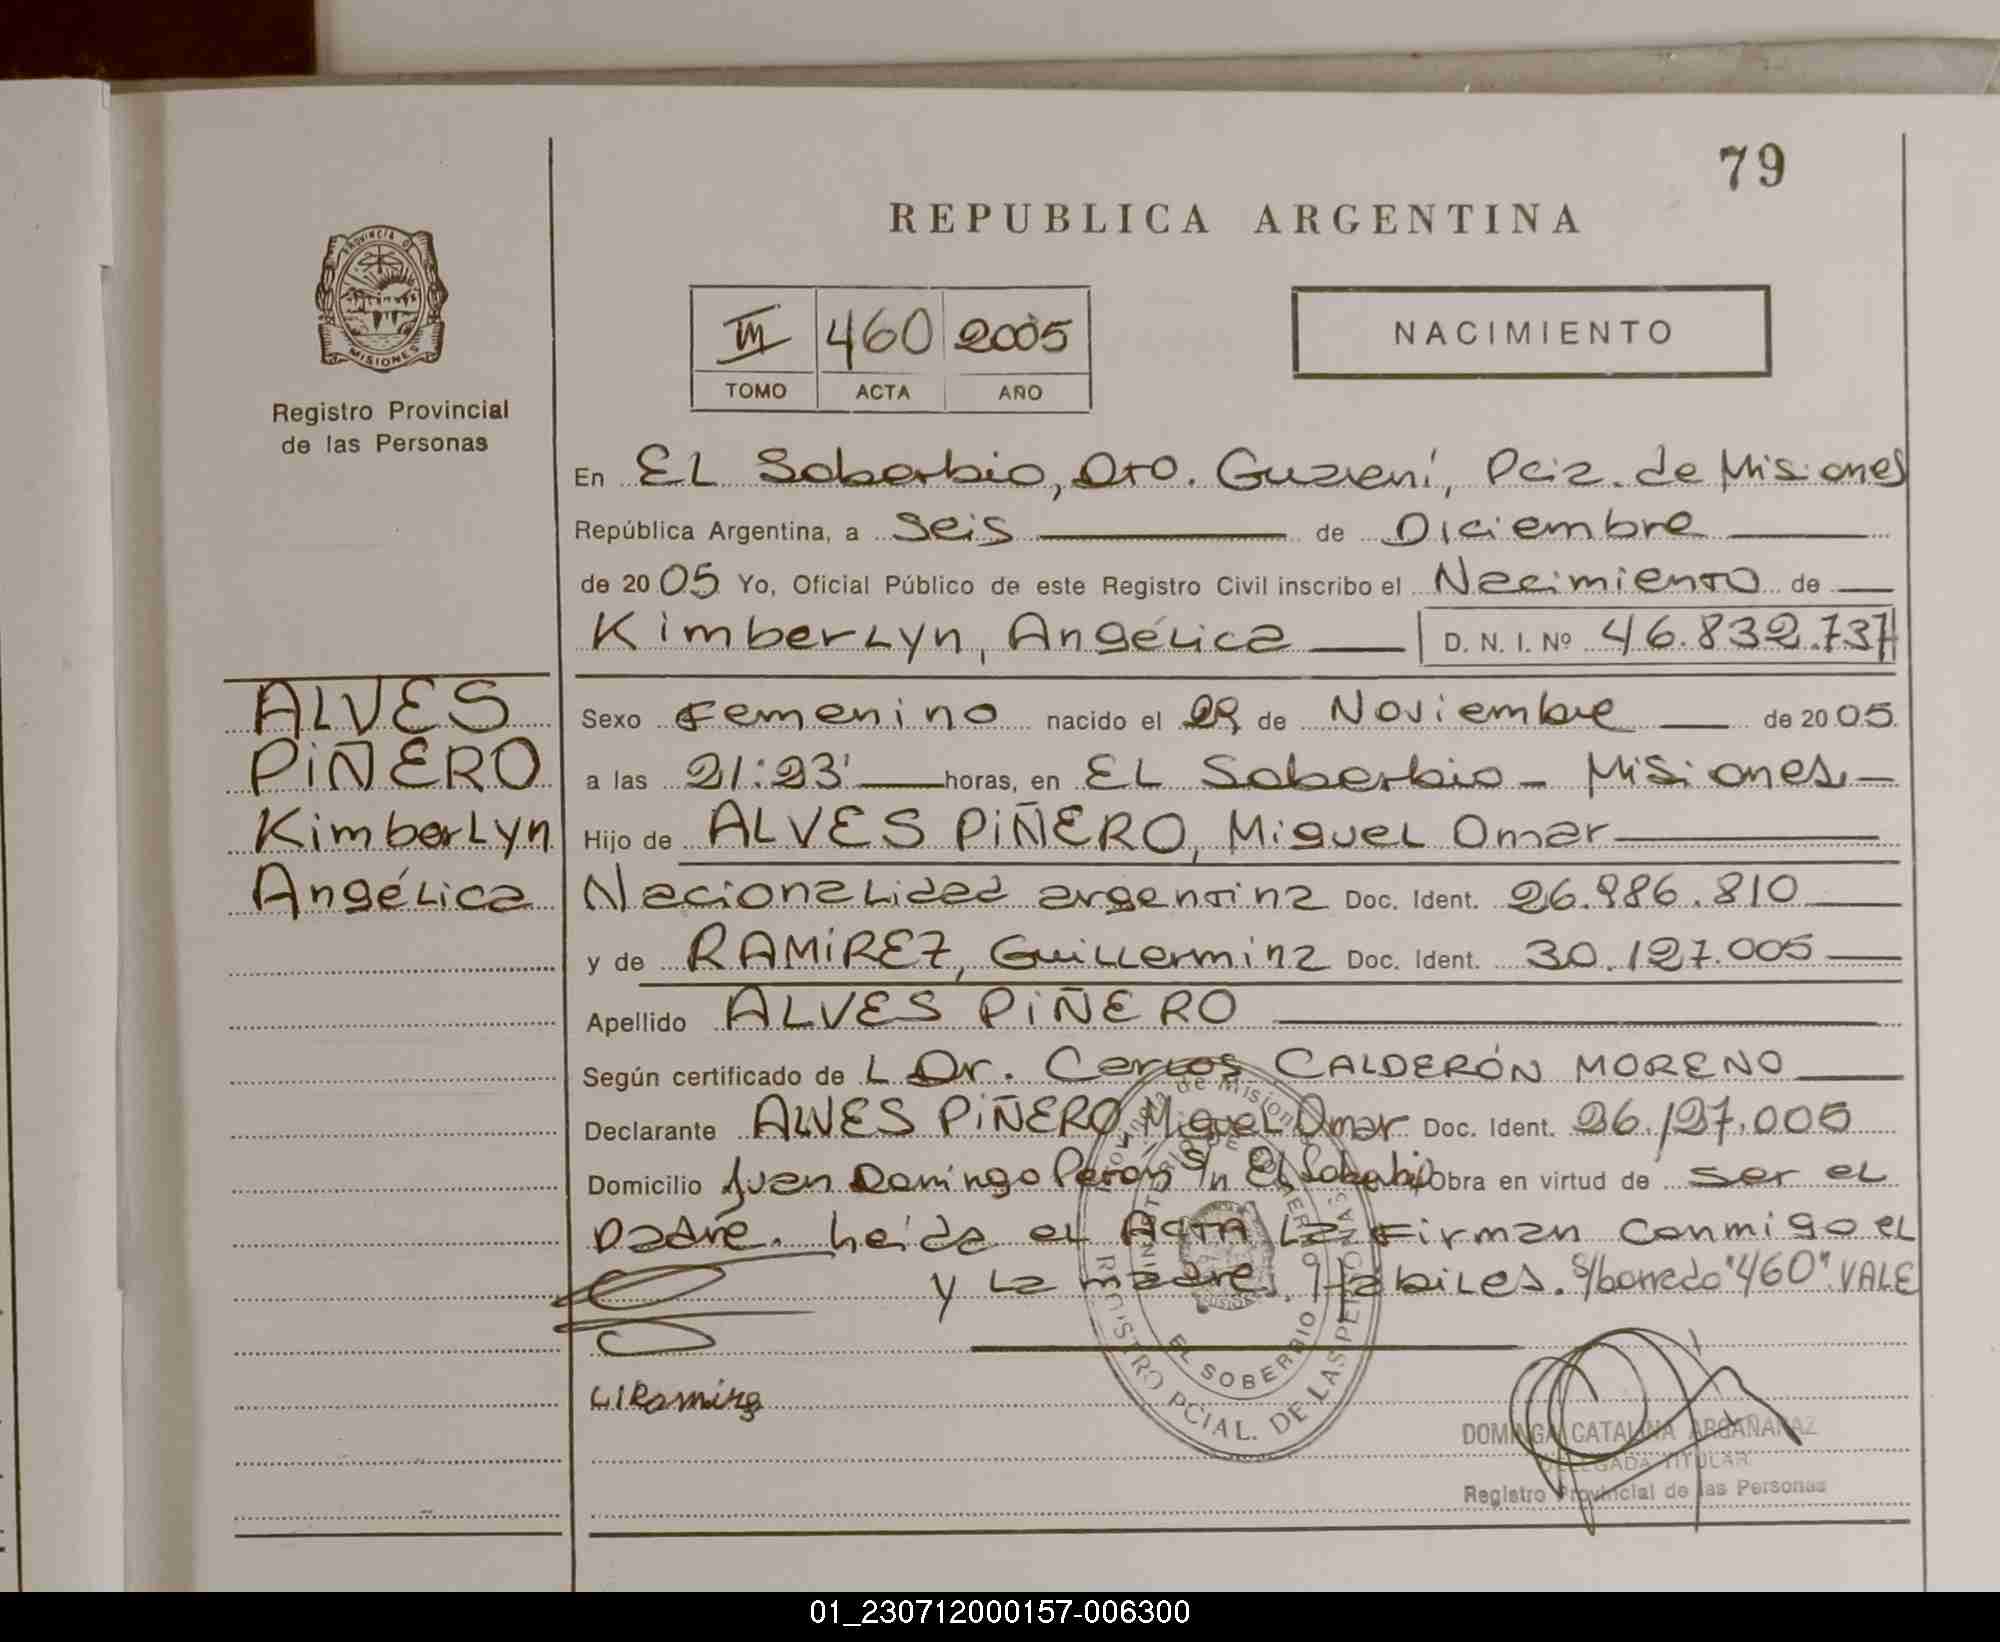 79
REPUBLICA ARGENTINA
PROVINCIA DE
MISIONES
Registro Provincial
de las Personas
III 460 2005
TOMO ACTA AÑO
NACIMIENTO
En EL Soberbio, Dto. Guaraní, Pcia. de Misiones
República Argentina, a seis de Diciembre
de 2005 Yo, Oficial Público de este Registro Civil inscribo el Nacimiento de
Kimberlyn, Angélica D. N. I. Nº 46.832.737
ALVES
PIÑERO
Kimberlyn
Angélica
Sexo Femenino nacido el 29 de Noviembre de 2005
a las 21:23' horas, en EL Soberbio - Misiones.-
Hijo de ALVES PIÑERO, Miguel Omar
Nacionalidad argentina Doc. Ident. 26.986.810
y de RAMIREZ, Guillermina Doc. Ident. 30.127.005
Apellido ALVES PIÑERO
Según certificado de L Dr. Carlos CALDERÓN MORENO
Declarante ALVES PIÑERO, Miguel Omar Doc. Ident. 26.127.005
Domicilio Juan Domingo Perón S/n El Soberbio Obra en virtud de ser el
padre. Leída el ACTA la firman conmigo el
y la madre. Hábiles. S/borrado "460". VALE
Provincia de Misiones
REGISTRO PCIAL. DE LAS PERSONAS
EL SOBERBIO
DOMINGA CATALINA ARGAÑARAZ
DELEGADA TITULAR
Registro Provincial de las Personas
01_230712000157-006300